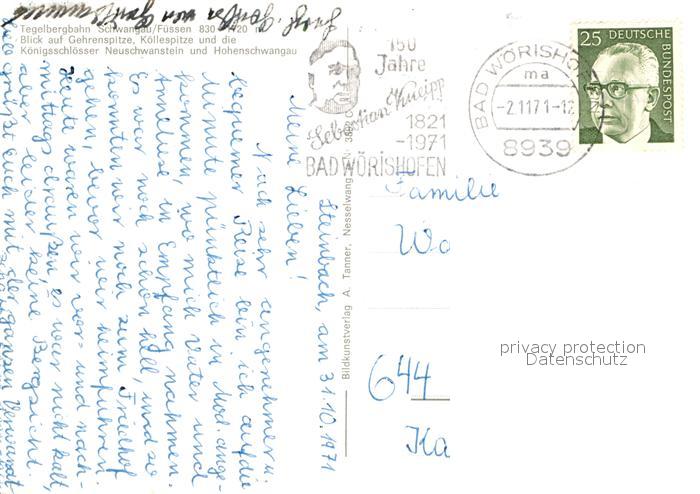 Tegelbergbahn Schwangau/Füssen 830-1720 m
Blick auf Gehrenspitze, Köllespitze und die
Königsschlösser Neuschwanstein und Hohenschwangau
150
Jahre
Sebastian Kneipp
1821
-1971
BAD WÖRISHOFEN
BAD WÖRISHOFEN
ma
-2.11.71-12
8939
25 DEUTSCHE
BUNDESPOST
Steinbach, am 31.10.1971
Meine Lieben!
Nach sehr angenehmer u.
bequemer Reise bin ich auf die
Minute pünktlich in Mod. ange-
kommen, wo mich Vater und
Anneliese in Empfang nahmen.
Es war noch schön hell, und so
konnten wir noch zum Friedhof
gehen, bevor wir heimfuhren.
Heute waren wir vor- und nach-
mittags draußen, es war nicht kalt,
aber leider keine Bergsicht.
euch mit der ganzen
Bildkunstverlag A. Tanner, Nesselwang
Familie
Wa
644
Ka
privacy protection
Datenschutz